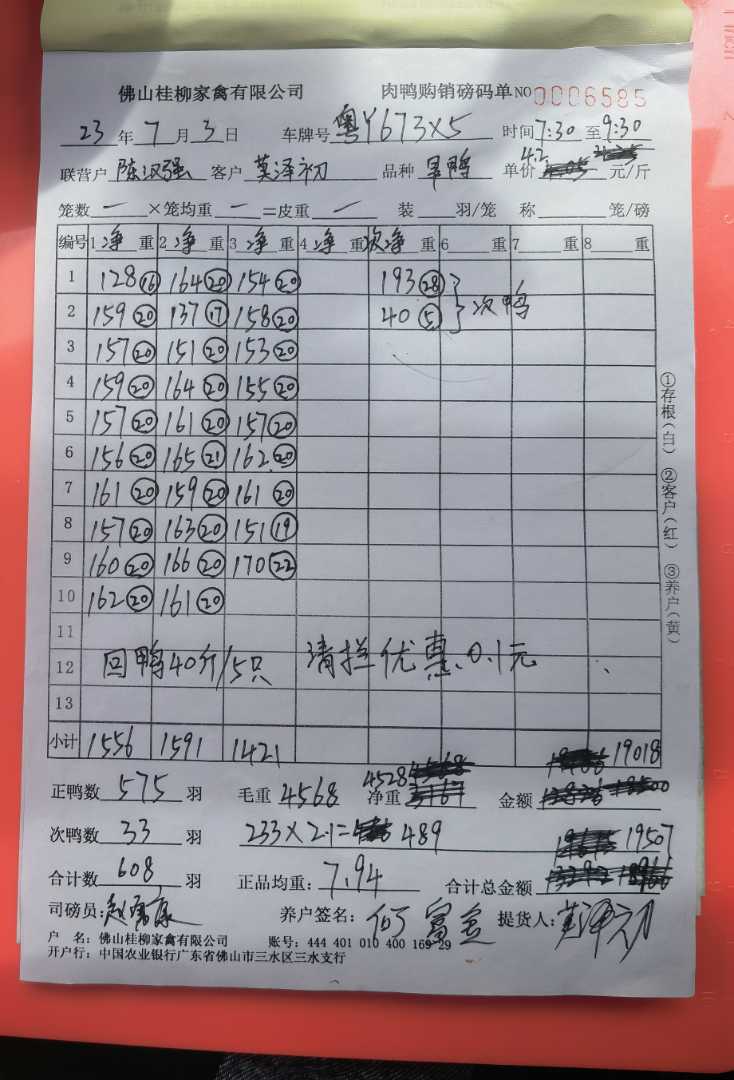 佛山桂柳家禽有限公司 肉鸭购销磅码单 NO 0006585
23 年 7 月 3 日 车牌号 粤Y673X5 时间 7:30 至 9:30
联营户 陈汉强 客户 莫泽初 品种 旱鸭 单价 4.2 元/斤
笼数 一 ×笼均重 一 =皮重 一 装 羽/笼 称 笼/磅
编号 1 净 重 2 净 重 3 净 重 4 净 重 次净 重 6 重 7 重 8 重
1 128 16 164 20 154 20 193 28
2 159 20 137 17 158 20 40 5 次鸭
3 157 20 151 20 153 20
4 159 20 164 20 155 20
5 157 20 161 20 157 20
6 156 20 165 21 162 20
7 161 20 159 20 161 20
8 157 20 163 20 151 19
9 160 20 166 20 170 22
10 162 20 161 20
11
12 回鸭40斤/5只 清拦优惠0.1元
13
小计 1556 1591 1421 19018
正鸭数 575 羽 毛重 4568 净重 4528 金额
次鸭数 33 羽 233×2.1= 489 19507
合计数 608 羽 正品均重: 7.94 合计总金额
司磅员: 养户签名: 何富金 提货人: 莫泽初
户 名: 佛山桂柳家禽有限公司 账号: 444 401 010 400 169 29
开户行: 中国农业银行广东省佛山市三水区三水支行
①存根(白) ②客户(红) ③养户(黄)